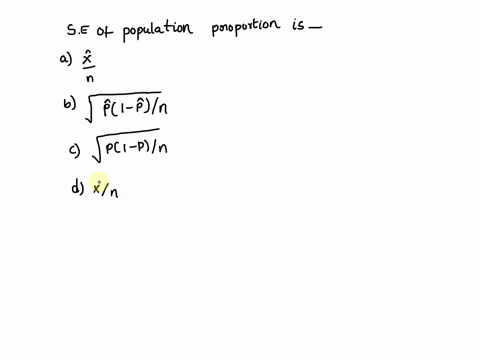 S.E of population proportion is —
a) x̂
n
b) √p̂(1-p̂)/n
c) √P(1-P)/n
d) ẋ/n